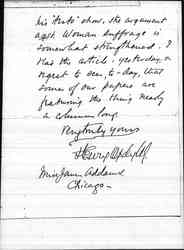 his 'facts' show, the argument
agst Woman Suffrage is
somewhat strengthened. I
read the article, yesterday, &
regret to see, to-day, that
some of our papers are
featuring the thing nearly
a column long.
Very truly yours
Miss Jane Addams
Chicago-